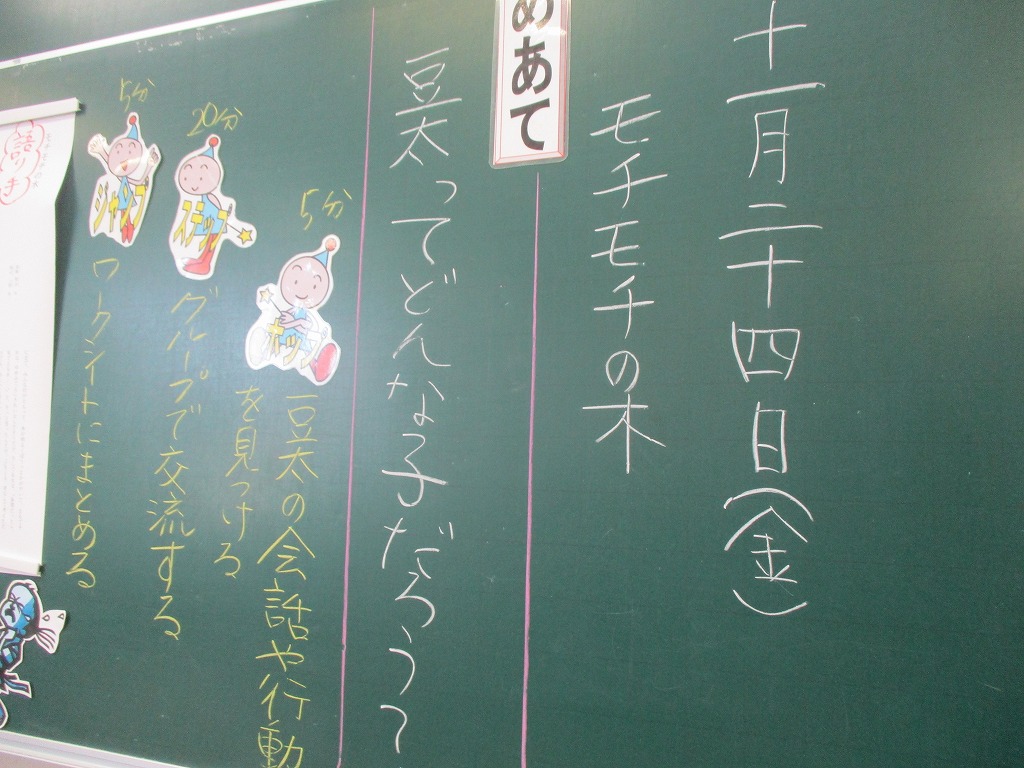 十一月二十四日(金)
モチモチの木
めあて
豆太ってどんな子だろうって
5分
ホップ
豆太の会話や行動
を見つける
20分
ステップ
グループで交流する
5分
ジャンプ
ワークシートにまとめる
語り